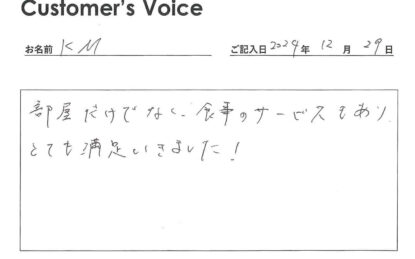 Customer's Voice
お名前 KM ご記入日 2024年 12月 29日
部屋だけでなく、食事のサービスもあり
とても満足いきました!